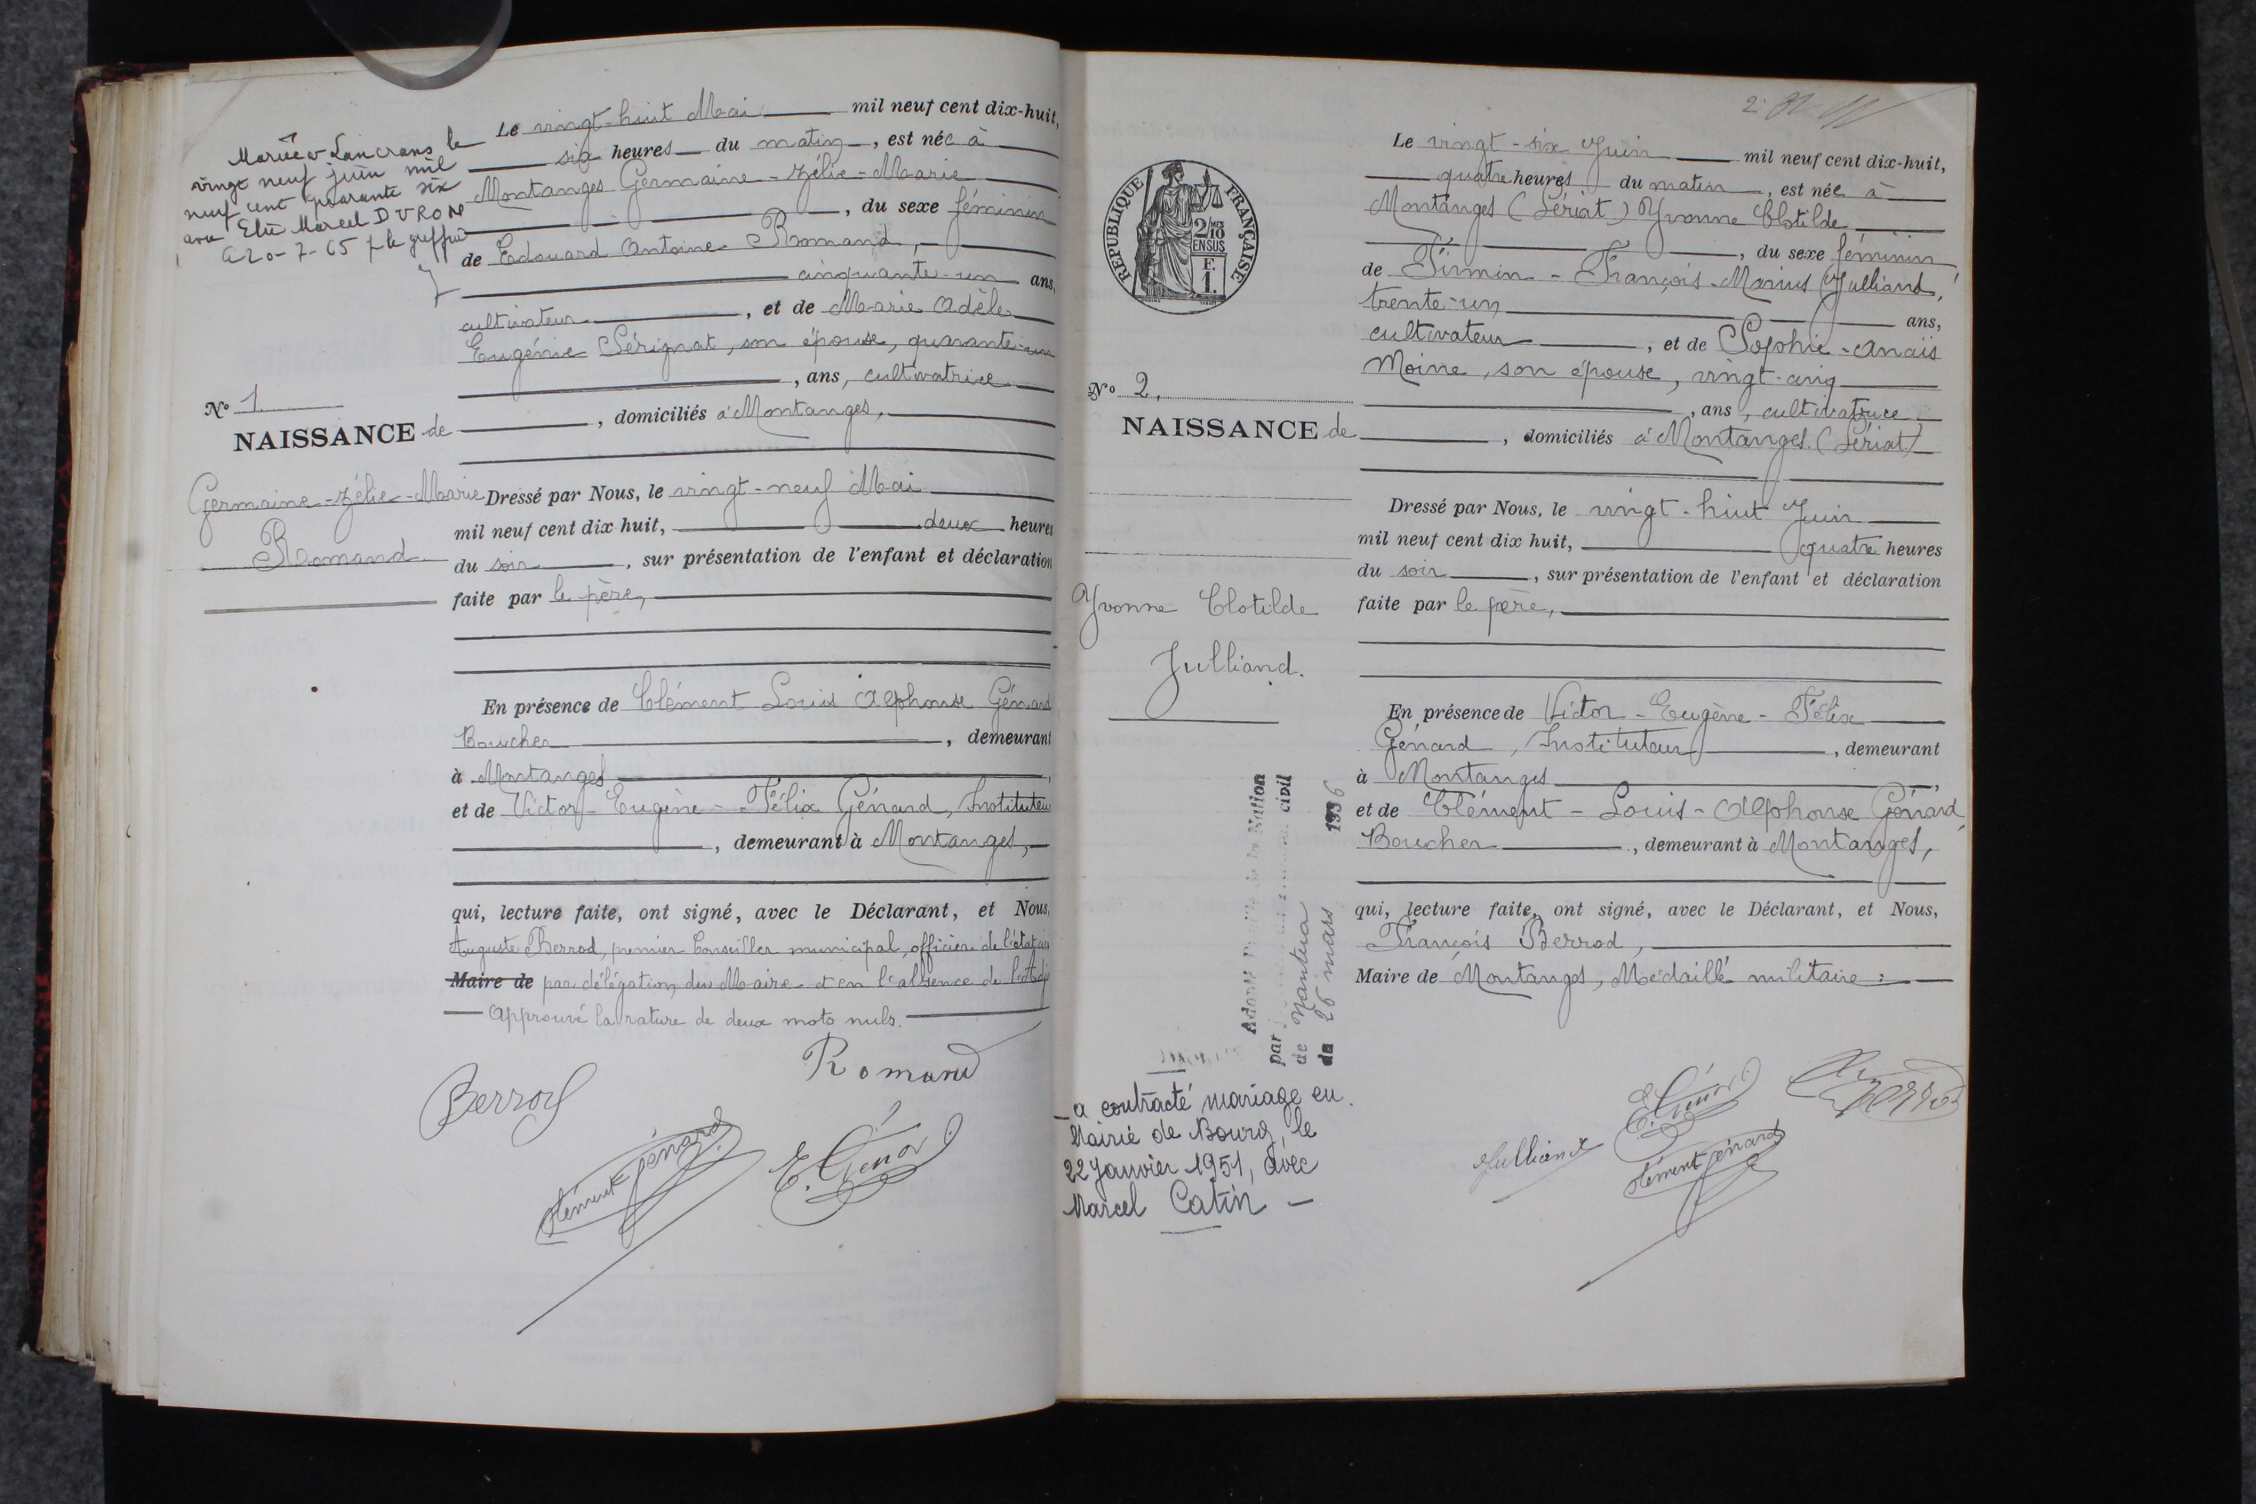 Marié à Lancrans le
vingt neuf juin mil
neuf cent quarante six
avec Elie Marcel DURON
le greffier
N° 1.
NAISSANCE de
Germaine-Zélie-Marie
Romand
Le vingt-huit Mai mil neuf cent dix-huit,
six heures du matin, est née à
Montanges Germaine-Zélie-Marie
, du sexe féminin
de Edouard Antoine Romand,
cinquante-un ans,
cultivateur, et de Marie Adèle
Eugénie Sérignat, son épouse, quarante-un
, ans, cultivatrice
, domiciliés à Montanges,
Dressé par Nous, le vingt-neuf Mai
mil neuf cent dix huit, deux heures
du soir, sur présentation de l'enfant et déclaration
faite par le père,
En présence de Clément Louis Alphonse Génard
Boucher, demeurant
à Montanges,
et de Victor-Eugène-Félix Génard, Instituteur
, demeurant à Montanges,
qui, lecture faite, ont signé, avec le Déclarant, et Nous,
Auguste Berrod, premier Conseiller municipal, officier de l'état civil
Maire de par délégation du Maire et en l'absence de l'Adj
Approuvé la rature de deux mots nuls.
Romand
Berrod
Clément Génard
E. Génard
RÉPUBLIQUE FRANÇAISE
2/10
EN SUS
F.
1.
N° 2,
NAISSANCE de
Yvonne Clotilde
Julliand.
Adopté par la Nation
par civil
de Nantua
du 26 mars 1936
a contracté mariage en
Mairie de Bourg, le
22 Janvier 1951, avec
Marcel Catin
Le vingt-six Juin mil neuf cent dix-huit,
quatre heures du matin, est née à
Montanges (Sériat) Yvonne Clotilde
, du sexe féminin,
de Firmin-François-Marius Julliand,
trente-un ans,
cultivateur, et de Sophie-Anaïs
Moine, son épouse, vingt-cinq
, ans, cultivatrice,
, domiciliés à Montanges (Sériat)
Dressé par Nous, le vingt-huit Juin
mil neuf cent dix huit, quatre heures
du soir, sur présentation de l'enfant et déclaration
faite par le père,
En présence de Victor-Eugène-Félix
Génard, Instituteur, demeurant
à Montanges,
et de Clément-Louis-Alphonse Génard,
Boucher, demeurant à Montanges,
qui, lecture faite, ont signé, avec le Déclarant, et Nous,
François Berrod,
Maire de Montanges, Médaillé militaire:
E. Génard
Berrod
Julliand
Clément Génard